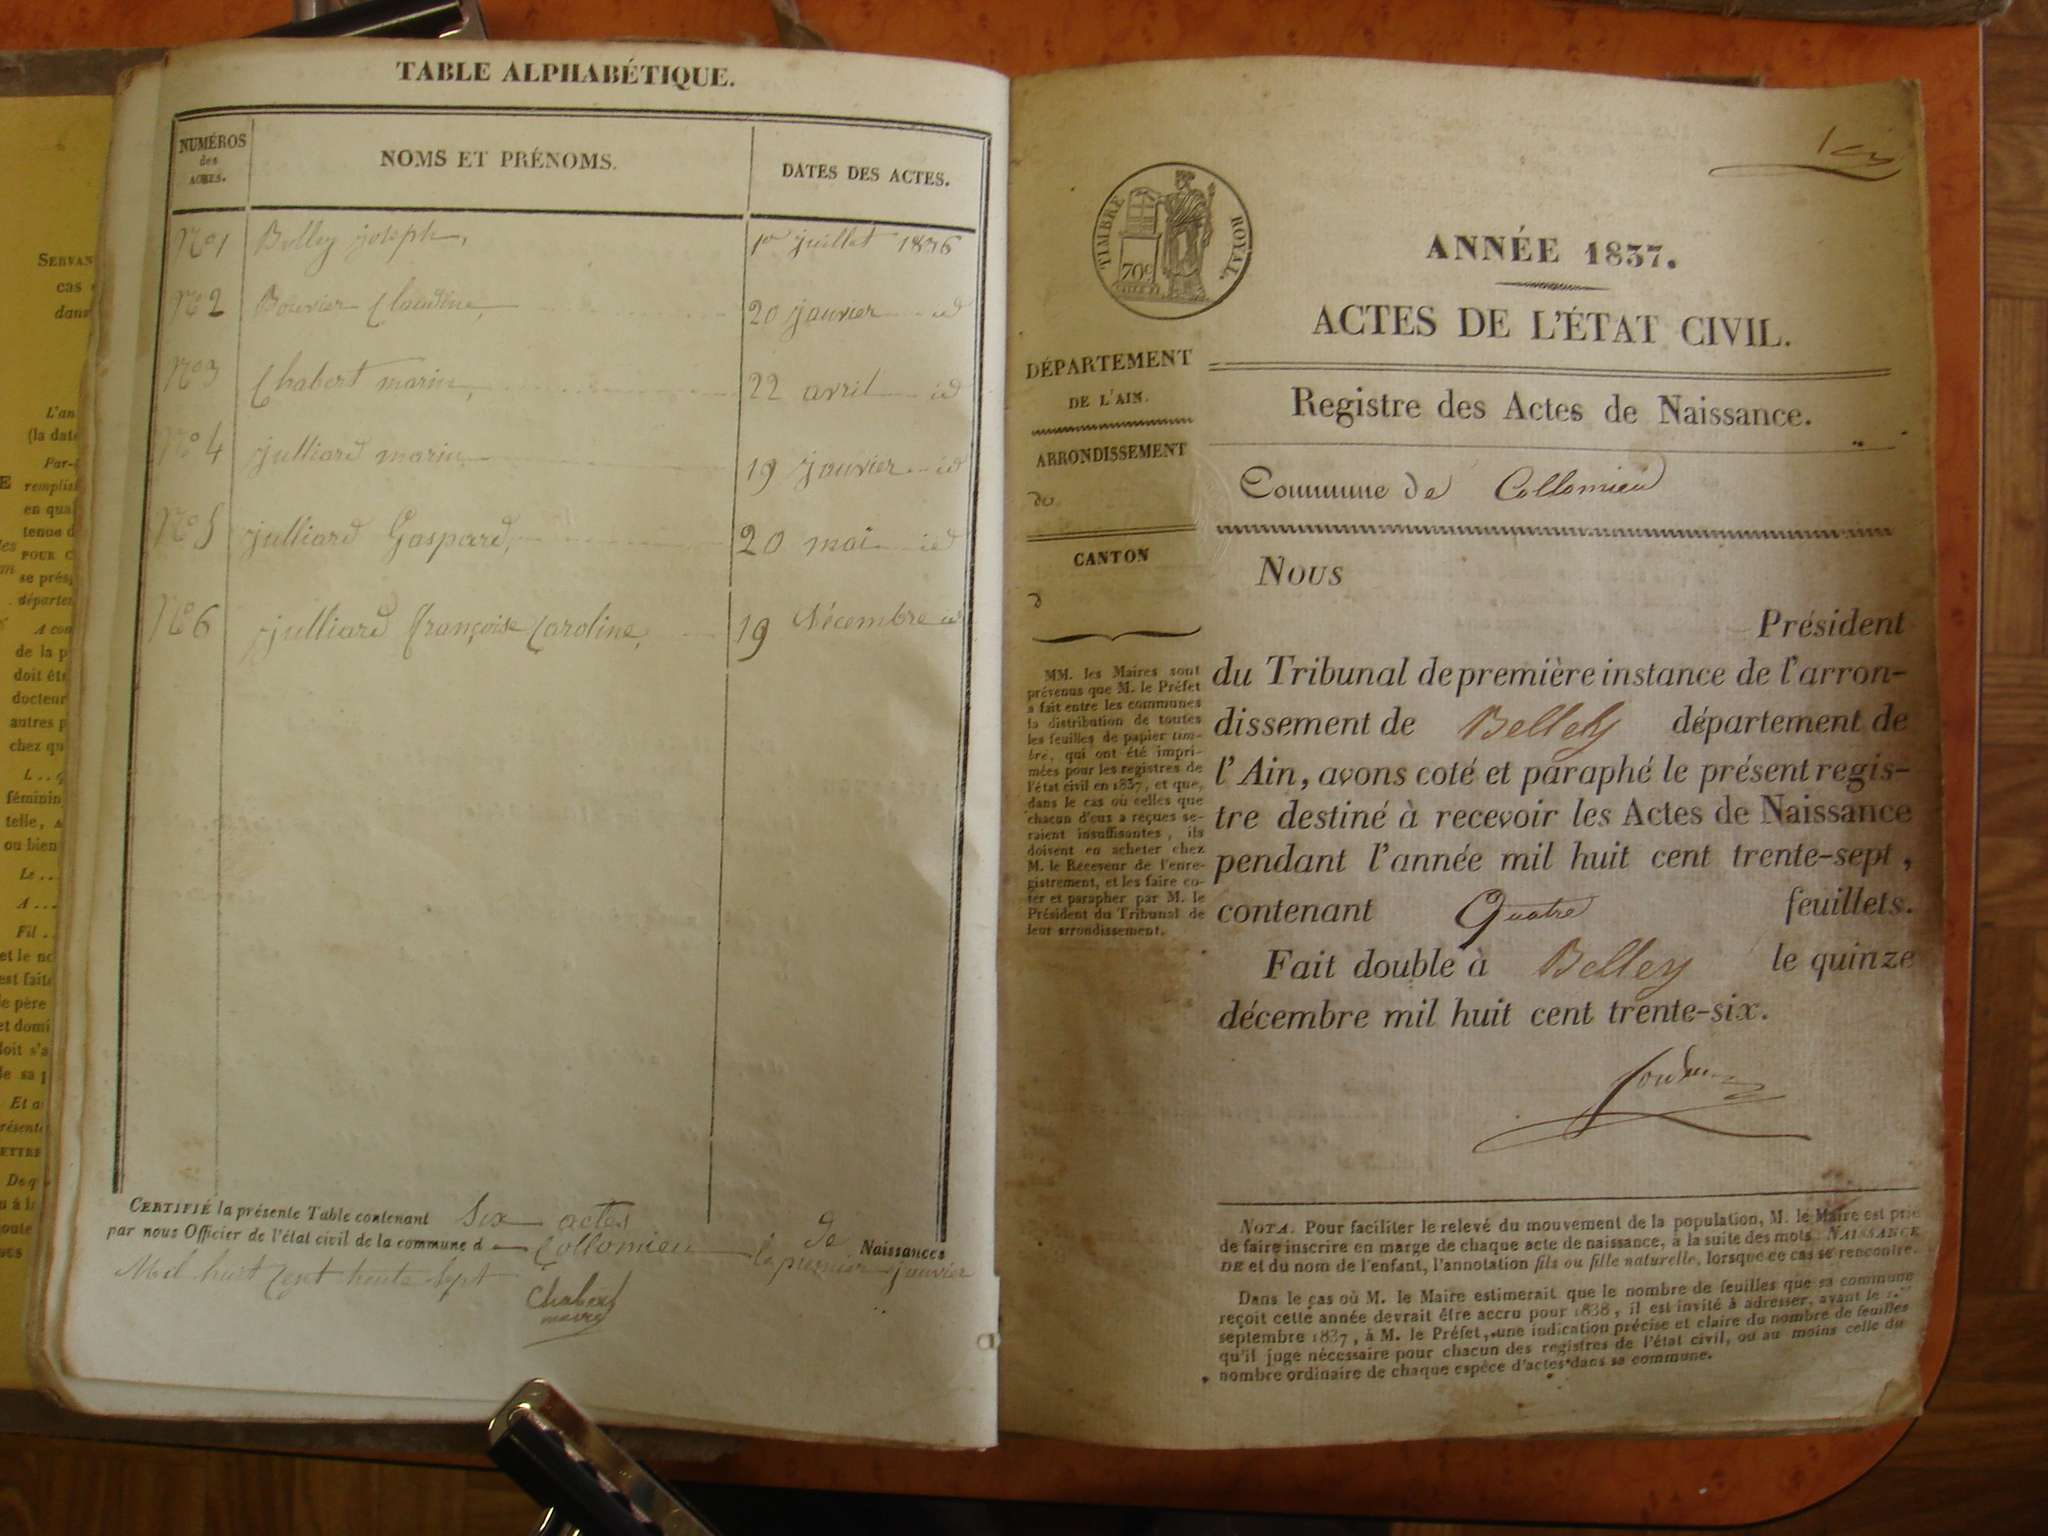 TABLE ALPHABÉTIQUE.
NUMÉROS des ACTES.
NOMS ET PRÉNOMS.
DATES DES ACTES.
No 1 Belley joseph, 1er juillet 1836
No 2 Bouvier Claudine, 20 janvier id
No 3 Chabert marie, 22 avril id
No 4 julliard marie, 19 janvier id
No 5 julliard Gaspard, 20 mai id
No 6 julliard françoise Caroline, 19 Décembre id
CERTIFIÉ la présente Table contenant Six actes de Naissances
par nous Officier de l'état civil de la commune d Collomieu le premier janvier
Mil huit Cent trente Sept
Chabert
maire
SERVAN
cas
dans
L'an
(la date
Par-
remplis
en qua
tenue d
POUR C
se prés
départem
A cou
de la p
doit êt
docteur
autres p
chez qu
féminin
telle, A
ou bien
Le ...
A ...
Fil ..
et le no
est faite
le père
et domi
doit s'a
de sa p
Et a
présent
ETTRE
De q
TIMBRE ROYAL.
70c
ANNÉE 1837.
ACTES DE L'ÉTAT CIVIL.
Registre des Actes de Naissance.
Commune de Collomieu
DÉPARTEMENT
DE L'AIN.
ARRONDISSEMENT
de
CANTON
d
MM. les Maires sont
prévenus que M. le Préfet
a fait entre les communes
la distribution de toutes
les feuilles de papier tim-
bré, qui ont été impri-
mées pour les registres de
l'état civil en 1837, et que,
dans le cas où celles que
chacun d'eux a reçues se-
raient insuffisantes, ils
doivent en acheter chez
M. le Receveur de l'enre-
gistrement, et les faire co-
ter et parapher par M. le
Président du Tribunal de
leur arrondissement.
Nous
Président
du Tribunal de première instance de l'arron-
dissement de Belley département de
l'Ain, avons coté et paraphé le présent regis-
tre destiné à recevoir les Actes de Naissance
pendant l'année mil huit cent trente-sept,
contenant Quatre feuillets.
Fait double à Belley le quinze
décembre mil huit cent trente-six.
NOTA. Pour faciliter le relevé du mouvement de la population, M. le Maire est prié
de faire inscrire en marge de chaque acte de naissance, à la suite des mots NAISSANCE
DE et du nom de l'enfant, l'annotation fils ou fille naturelle, lorsque ce cas se rencontre.
Dans le cas où M. le Maire estimerait que le nombre de feuilles que sa commune
reçoit cette année devrait être accru pour 1838, il est invité à adresser, avant le 1.er
septembre 1837, à M. le Préfet, une indication précise et claire du nombre de feuilles
qu'il juge nécessaire pour chacun des registres de l'état civil, ou au moins celle du
nombre ordinaire de chaque espèce d'actes dans sa commune.